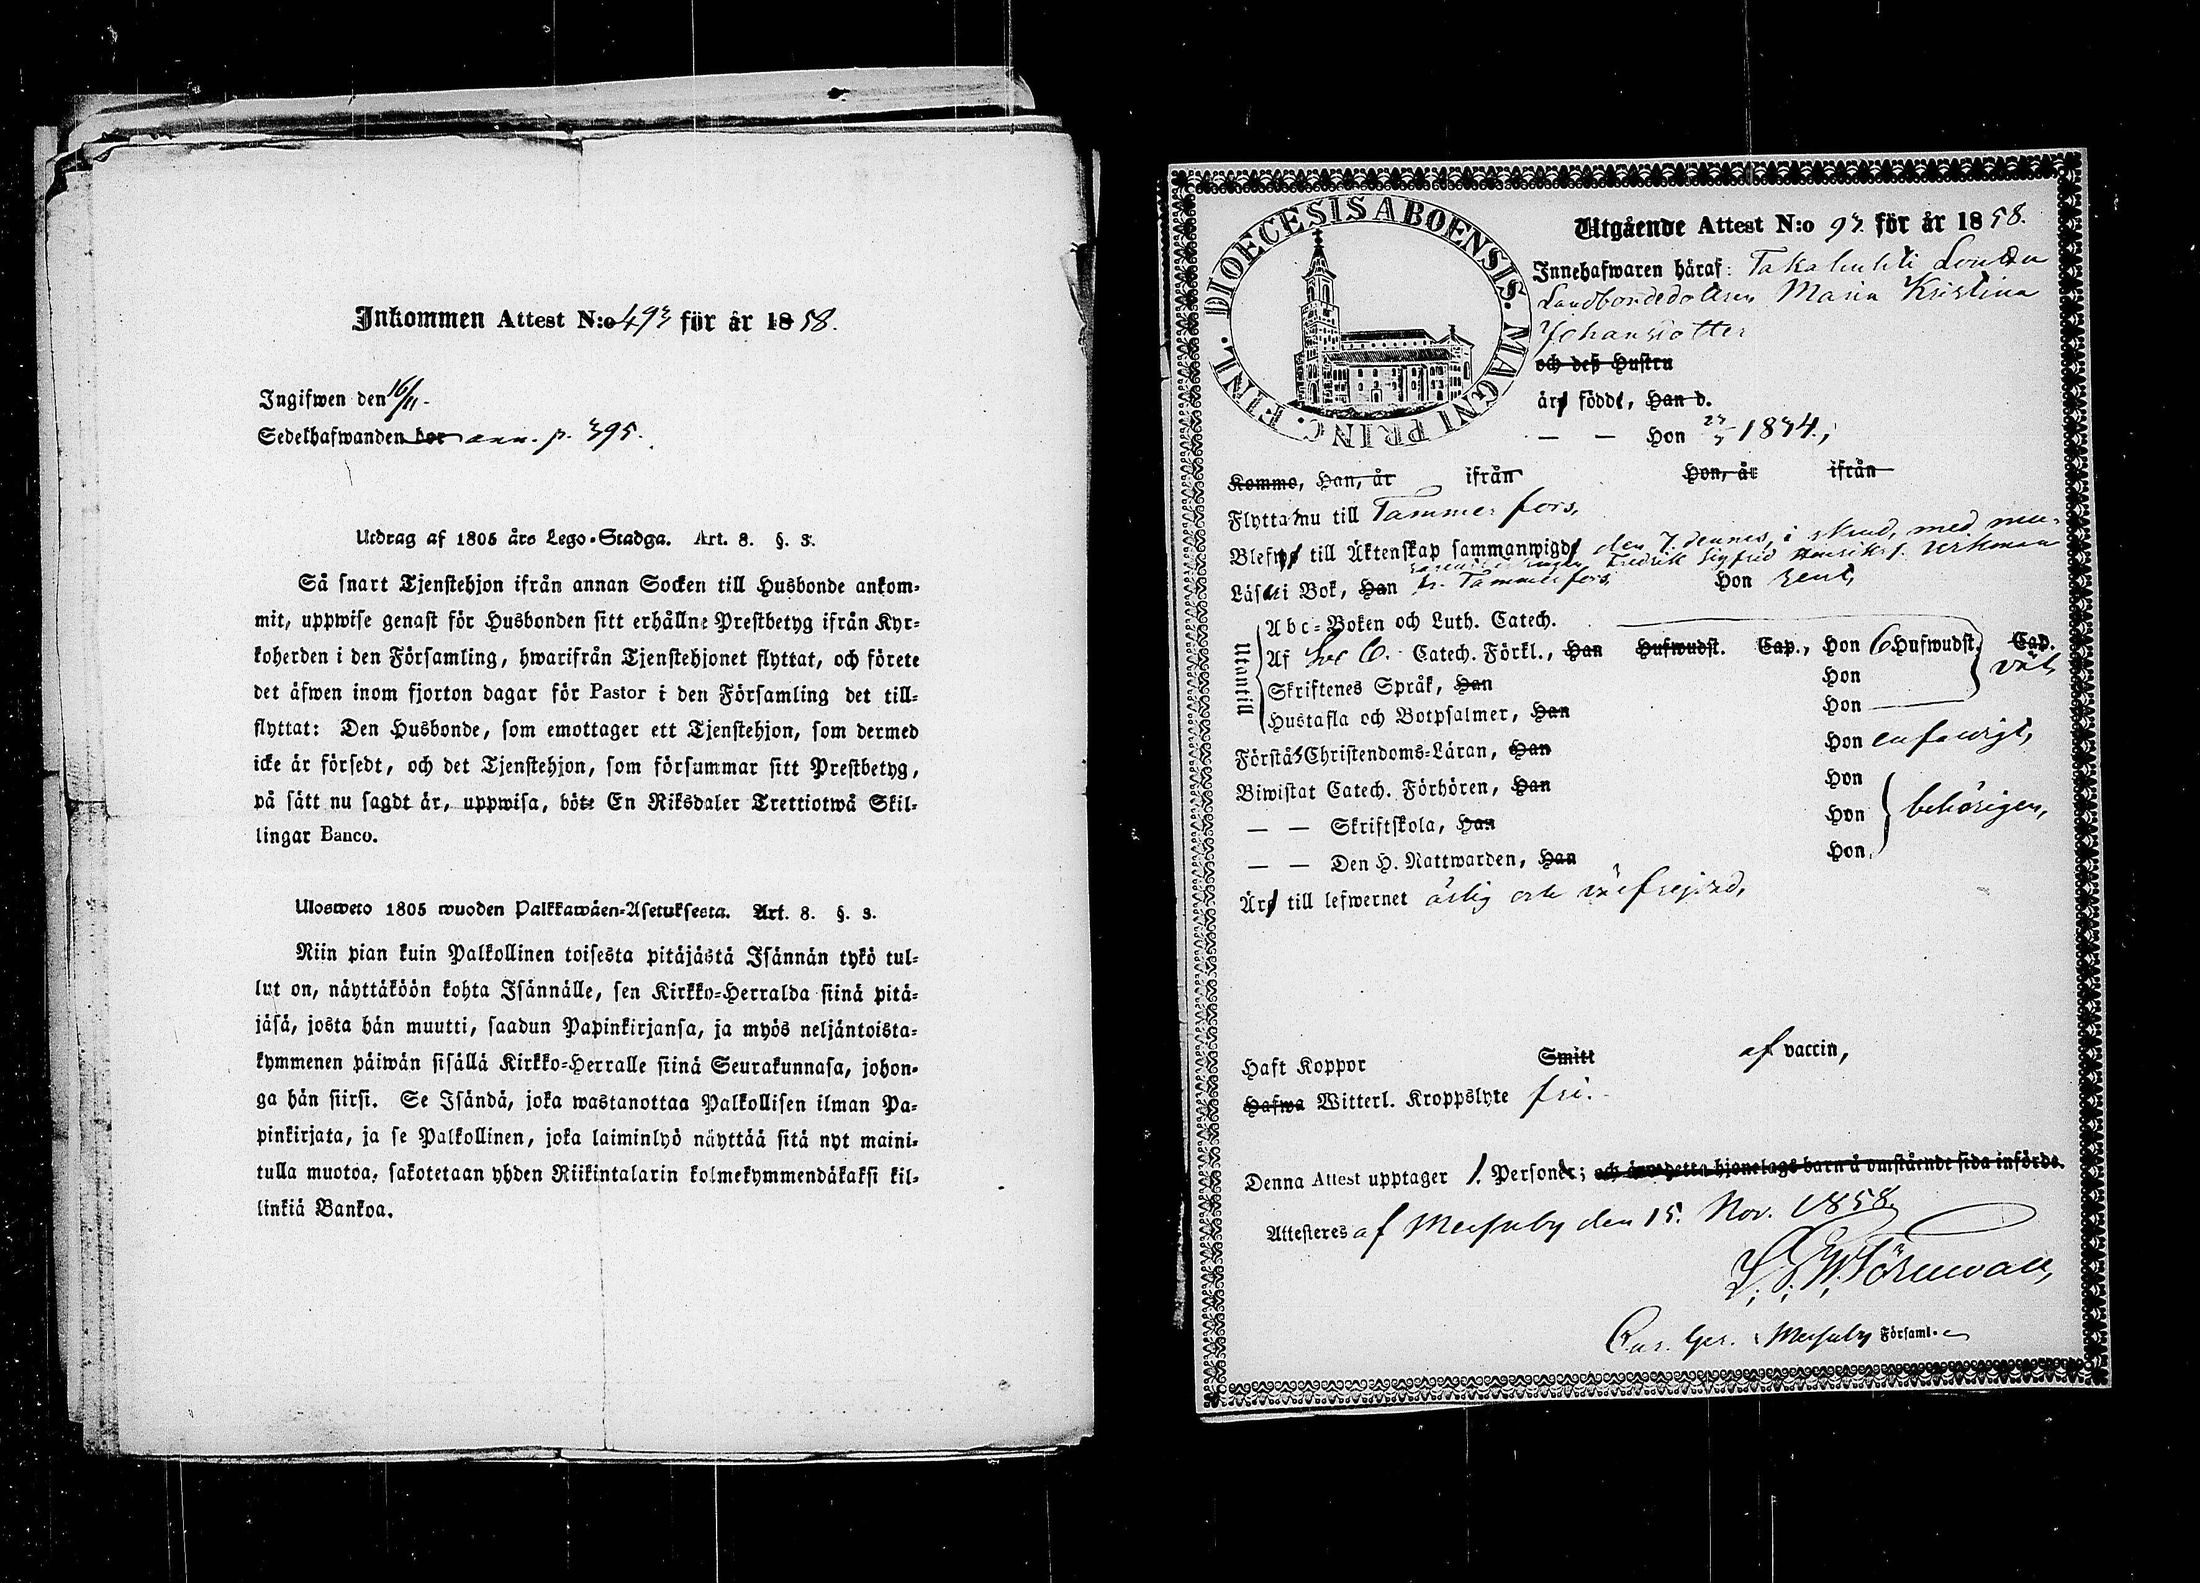 Inkommen Attest N:o 493 för år 1858.
Ingifwen den 16/11.
Sedelhafwanden bor ann. p. 395.
Utdrag af 1805 års Lego-Stadga. Art. 8. §. 3.
Så snart Tjenstehjon ifrån annan Socken till Husbonde ankom-
mit, uppwise genast för Husbonden sitt erhållne Prestbetyg ifrån Kyr-
koherden i den Församling, hwarifrån Tjenstehjonet flyttat, och förete
det äfwen inom fjorton dagar för Pastor i den Församling det till-
flyttat: Den Husbonde, som emottager ett Tjenstehjon, som dermed
icke är försedt, och det Tjenstehjon, som försummar sitt Prestbetyg,
på sätt nu sagdt är, uppwisa, böte En Riksdaler Trettiotwå Skil-
lingar Banco.
Ulosweto 1805 wuoden Palkkawäen-Asetuksesta. Art. 8. §. 3.
Niin pian kuin Palkollinen toisesta pitäjästä Isännän tykö tul-
lut on, näyttäköön kohta Isännälle, sen Kirkko-Herralda siinä pitä-
jäsä, josta hän muutti, saadun Papinkirjansa, ja myös neljäntoista-
kymmenen päiwän sisällä Kirkko-Herralle siinä Seurakunnasa, johon-
ga hän siirsi. Se Isändä, joka wastanottaa Palkollisen ilman Pa-
pinkirjata, ja se Palkollinen, joka laiminlyö näyttää sitä nyt maini-
tulla muotoa, sakotetaan yhden Riikintalarin kolmekymmendäkaksi kil-
linkiä Bankoa.
DIOECESIS ABOENSIS. MAGNI PRINC. FINL.
Utgående Attest N:o 93 för år 1858.
Innehafwaren häraf: Takahuhti
Landbondedottren Maria Kristina
Johansdotter
och deß Hustru
är född, Han d.
— — Hon 27/7 1834,
Komme, Han, år ifrån Hon, år ifrån
Flytta nu till Tammerfors,
Blefwe till Äktenskap sammanwigde den 7 dennes, i med
Fredrik Sigfrid
Läs i Bok, Han fr. Tammerfors Hon rent,
Utantill
Abc-Boken och Luth. Catech.
Af Sve C. Catech. Förkl., Han Hufwudst. Cap., Hon 6 Hufwudst. Cap.
väl,
Skriftenes Språk, Han Hon
Hustafla och Botpsalmer, Han Hon
Förstå Christendoms-Läran, Han Hon enfaldigt,
Biwistat Catech. Förhören, Han Hon
— — Skriftskola, Han Hon behörigen,
— — Den H. Nattwarden, Han Hon
Är till lefwernet ärlig och välfrejdad,
Haft Koppor Smitt af vaccin,
Hafwa Witterl. Kroppslyte fri.
Denna Attest upptager 1. Person; och äro detta hjonelags barn å omstående sida införde.
Attesteres af Messuby den 15. Nov. 1858
Messuby Församl.